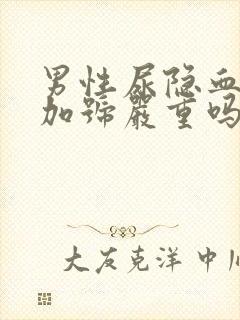 男性尿隐血
加號嚴重吗
大友克洋 中川